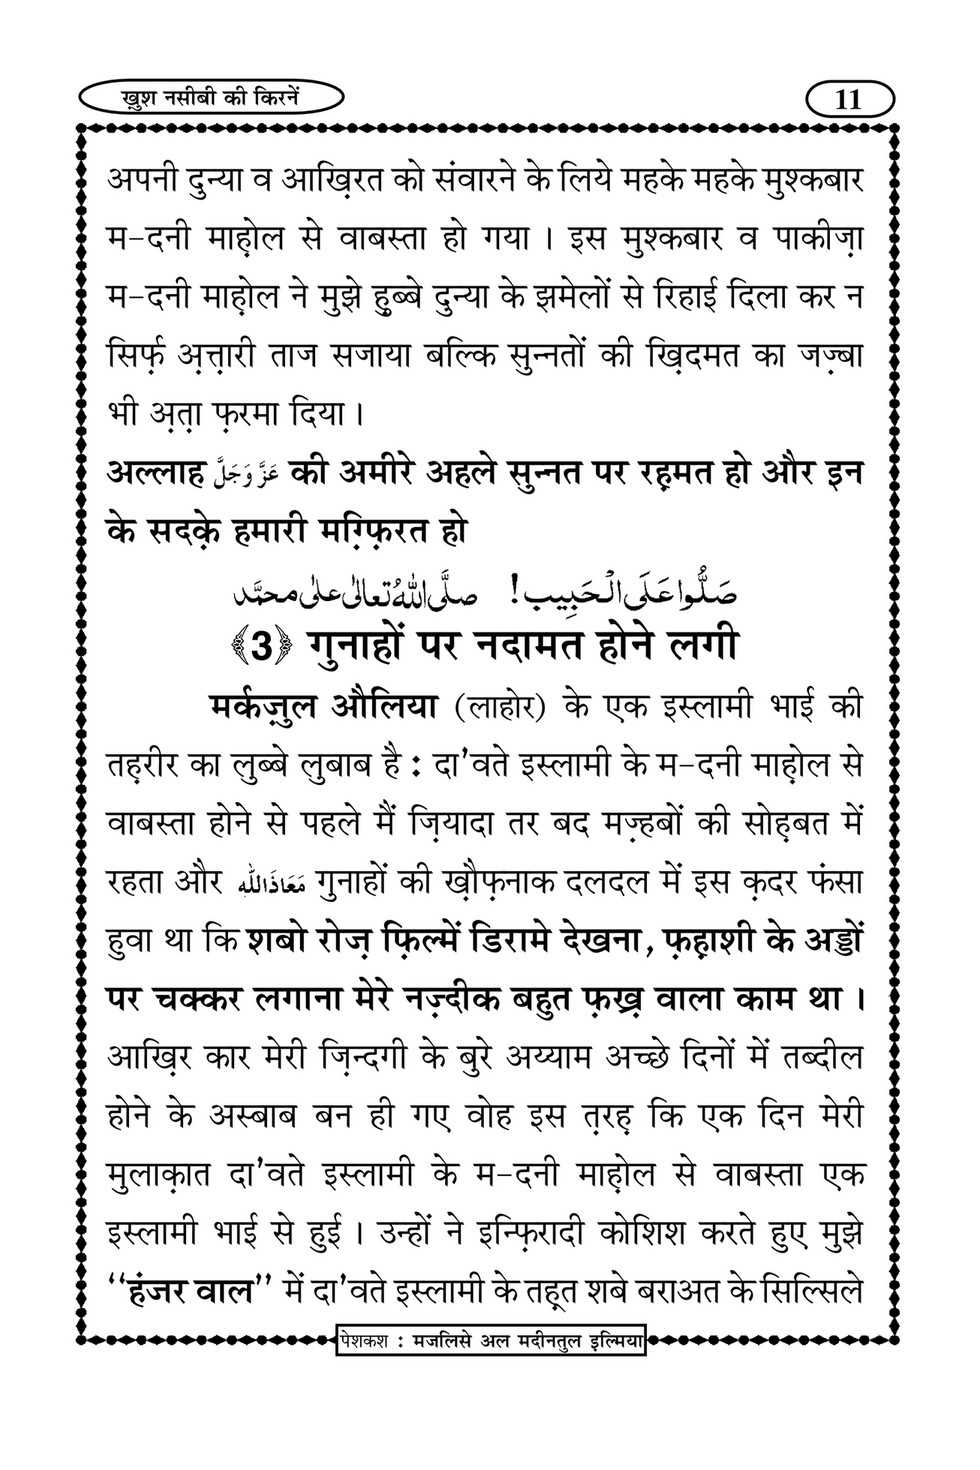 ख़ुश नसीबी की किरनें
11
अपनी दुन्या व आख़िरत को संवारने के लिये महके महके मुश्कबार
म-दनी माह़ोल से वाबस्ता हो गया । इस मुश्कबार व पाकीज़ा
म-दनी माह़ोल ने मुझे ह़ुब्बे दुन्या के झमेलों से रिहाई दिला कर न
सिर्फ़ अ़त्त़ारी ताज सजाया बल्कि सुन्नतों की ख़िदमत का जज़्बा
भी अ़त़ा फ़रमा दिया ।
अल्लाह عَزَّوَجَلَّ की अमीरे अहले सुन्नत पर रह़मत हो और इन
के सदक़े हमारी मग़्फ़िरत हो
صَلُّوا عَلَى الْحَبِيب! صلَّى اللهُ تعالٰى علٰى محمَّد
﴾3﴿ गुनाहों पर नदामत होने लगी
मर्कज़ुल औलिया (लाहोर) के एक इस्लामी भाई की
तह़रीर का लुब्बे लुबाब है : दा'वते इस्लामी के म-दनी माह़ोल से
वाबस्ता होने से पहले मैं ज़ियादा तर बद मज़्हबों की सोह़बत में
रहता और مَعَاذَالله गुनाहों की ख़ौफ़नाक दलदल में इस क़दर फंसा
हुवा था कि शबो रोज़ फ़िल्में डिरामे देखना, फ़ह़ाशी के अड्डों
पर चक्कर लगाना मेरे नज़्दीक बहुत फ़ख़्र वाला काम था ।
आख़िर कार मेरी ज़िन्दगी के बुरे अय्याम अच्छे दिनों में तब्दील
होने के अस्बाब बन ही गए वोह इस त़रह़ कि एक दिन मेरी
मुलाक़ात दा'वते इस्लामी के म-दनी माह़ोल से वाबस्ता एक
इस्लामी भाई से हुई । उन्हों ने इन्फ़िरादी कोशिश करते हुए मुझे
‘‘हंजर वाल’’ में दा'वते इस्लामी के तह़्त शबे बराअत के सिल्सिले
पेशकश : मजलिसे अल मदीनतुल इल्मिया